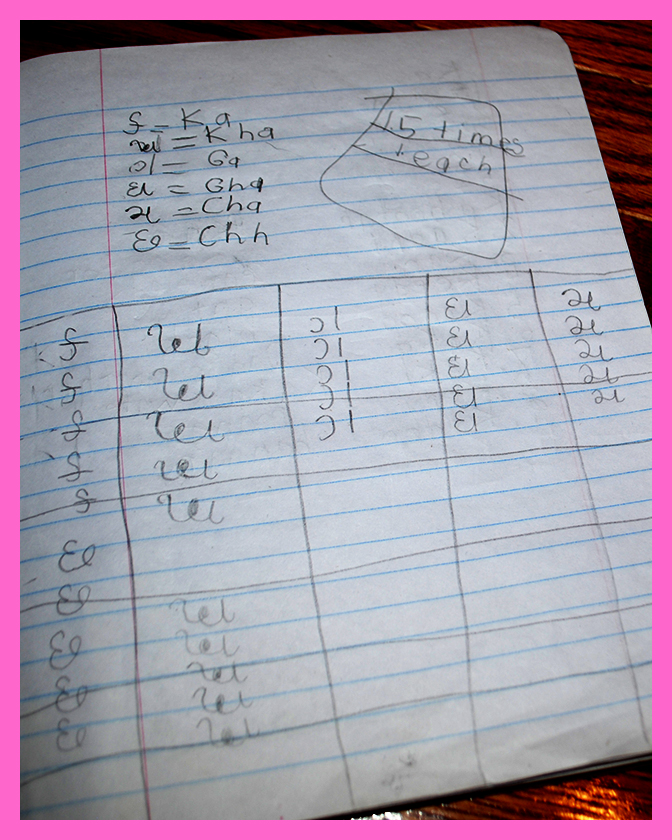 ક = Ka
ખ = Kha
ગ = Ga
ઘ = Gha
ચ = Cha
છ = Chh
15 times
each
ક ખ ગ ઘ ચ
ક ખ ગ ઘ ચ
ક ખ ગ ઘ ચ
ક ખ ગ ઘ ચ
ક ખ ગ ઘ ચ
છ
છ ખ
છ ખ
છ ખ
છ ખ
ખ